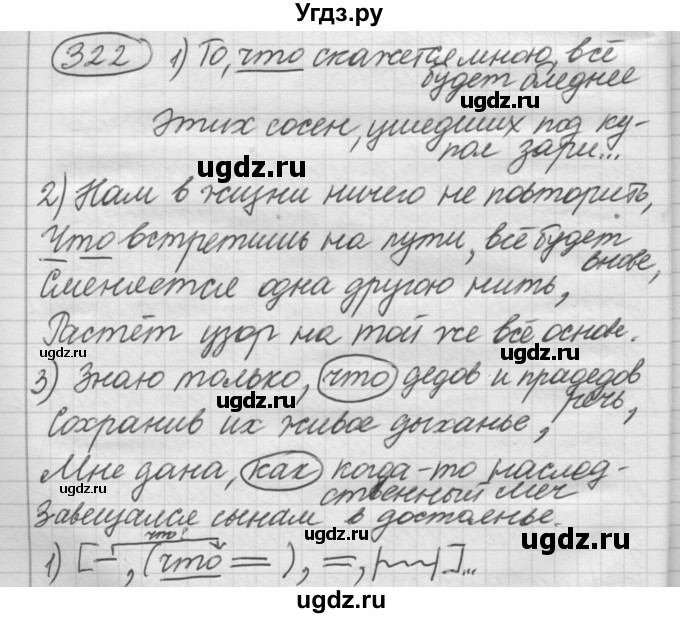 Угдз.ру
322 1) То, что скажется мною, всё
будет бледнее
ugdz.ru
Этих сосен, ушедших под ку-
пол зари...
ugdz.ru
ugdz.ru
2) Нам в жизни ничего не повторить,
ugdz.ru
Что встретишь на пути, всё будет
внове,
Сменяется одна другою нить,
Растёт узор на той же всё основе.
ugdz.ru
ugdz.ru
3) Знаю только, что дедов и прадедов
речь,
ugdz.ru
Сохранив их живое дыханье,
Мне дана, как когда-то наслед-
ственный меч
ugdz.ru
Завещался сынам в достоянье.
что?
1) [ – , (что = ), =, | | ]...
ugdz.ru
ugdz.ru